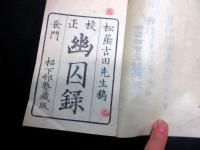 松陰吉田先生稿
校正
幽囚録
長門
松下邨塾蔵版